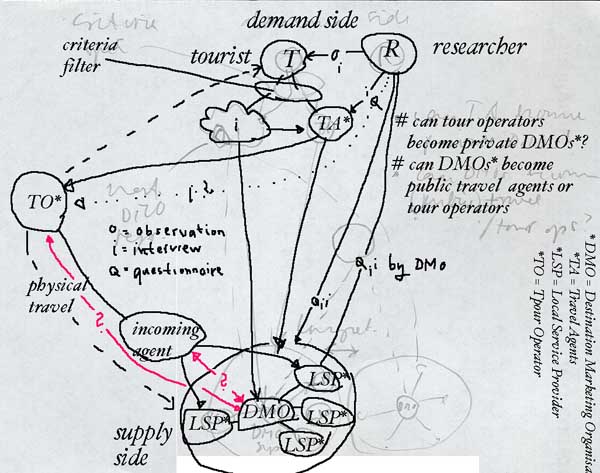 demand side
criteria
filter
tourist
T
o i
R
researcher
i Q
i
TA*
# can tour operators
become private DMOs*?
# can DMOs* become
public travel agents or
tour operators
TO*
i ?
o = observation
i = interview
Q = questionnaire
Q, i by DMO
Q, i
physical
travel
?
incoming
agent
?
LSP*
LSP*
DMO
LSP*
LSP*
supply
side
*DMO = Destination Marketing Organisa
*TA = Travel Agents
*LSP = Local Service Provider
*TO = Tpour Operator